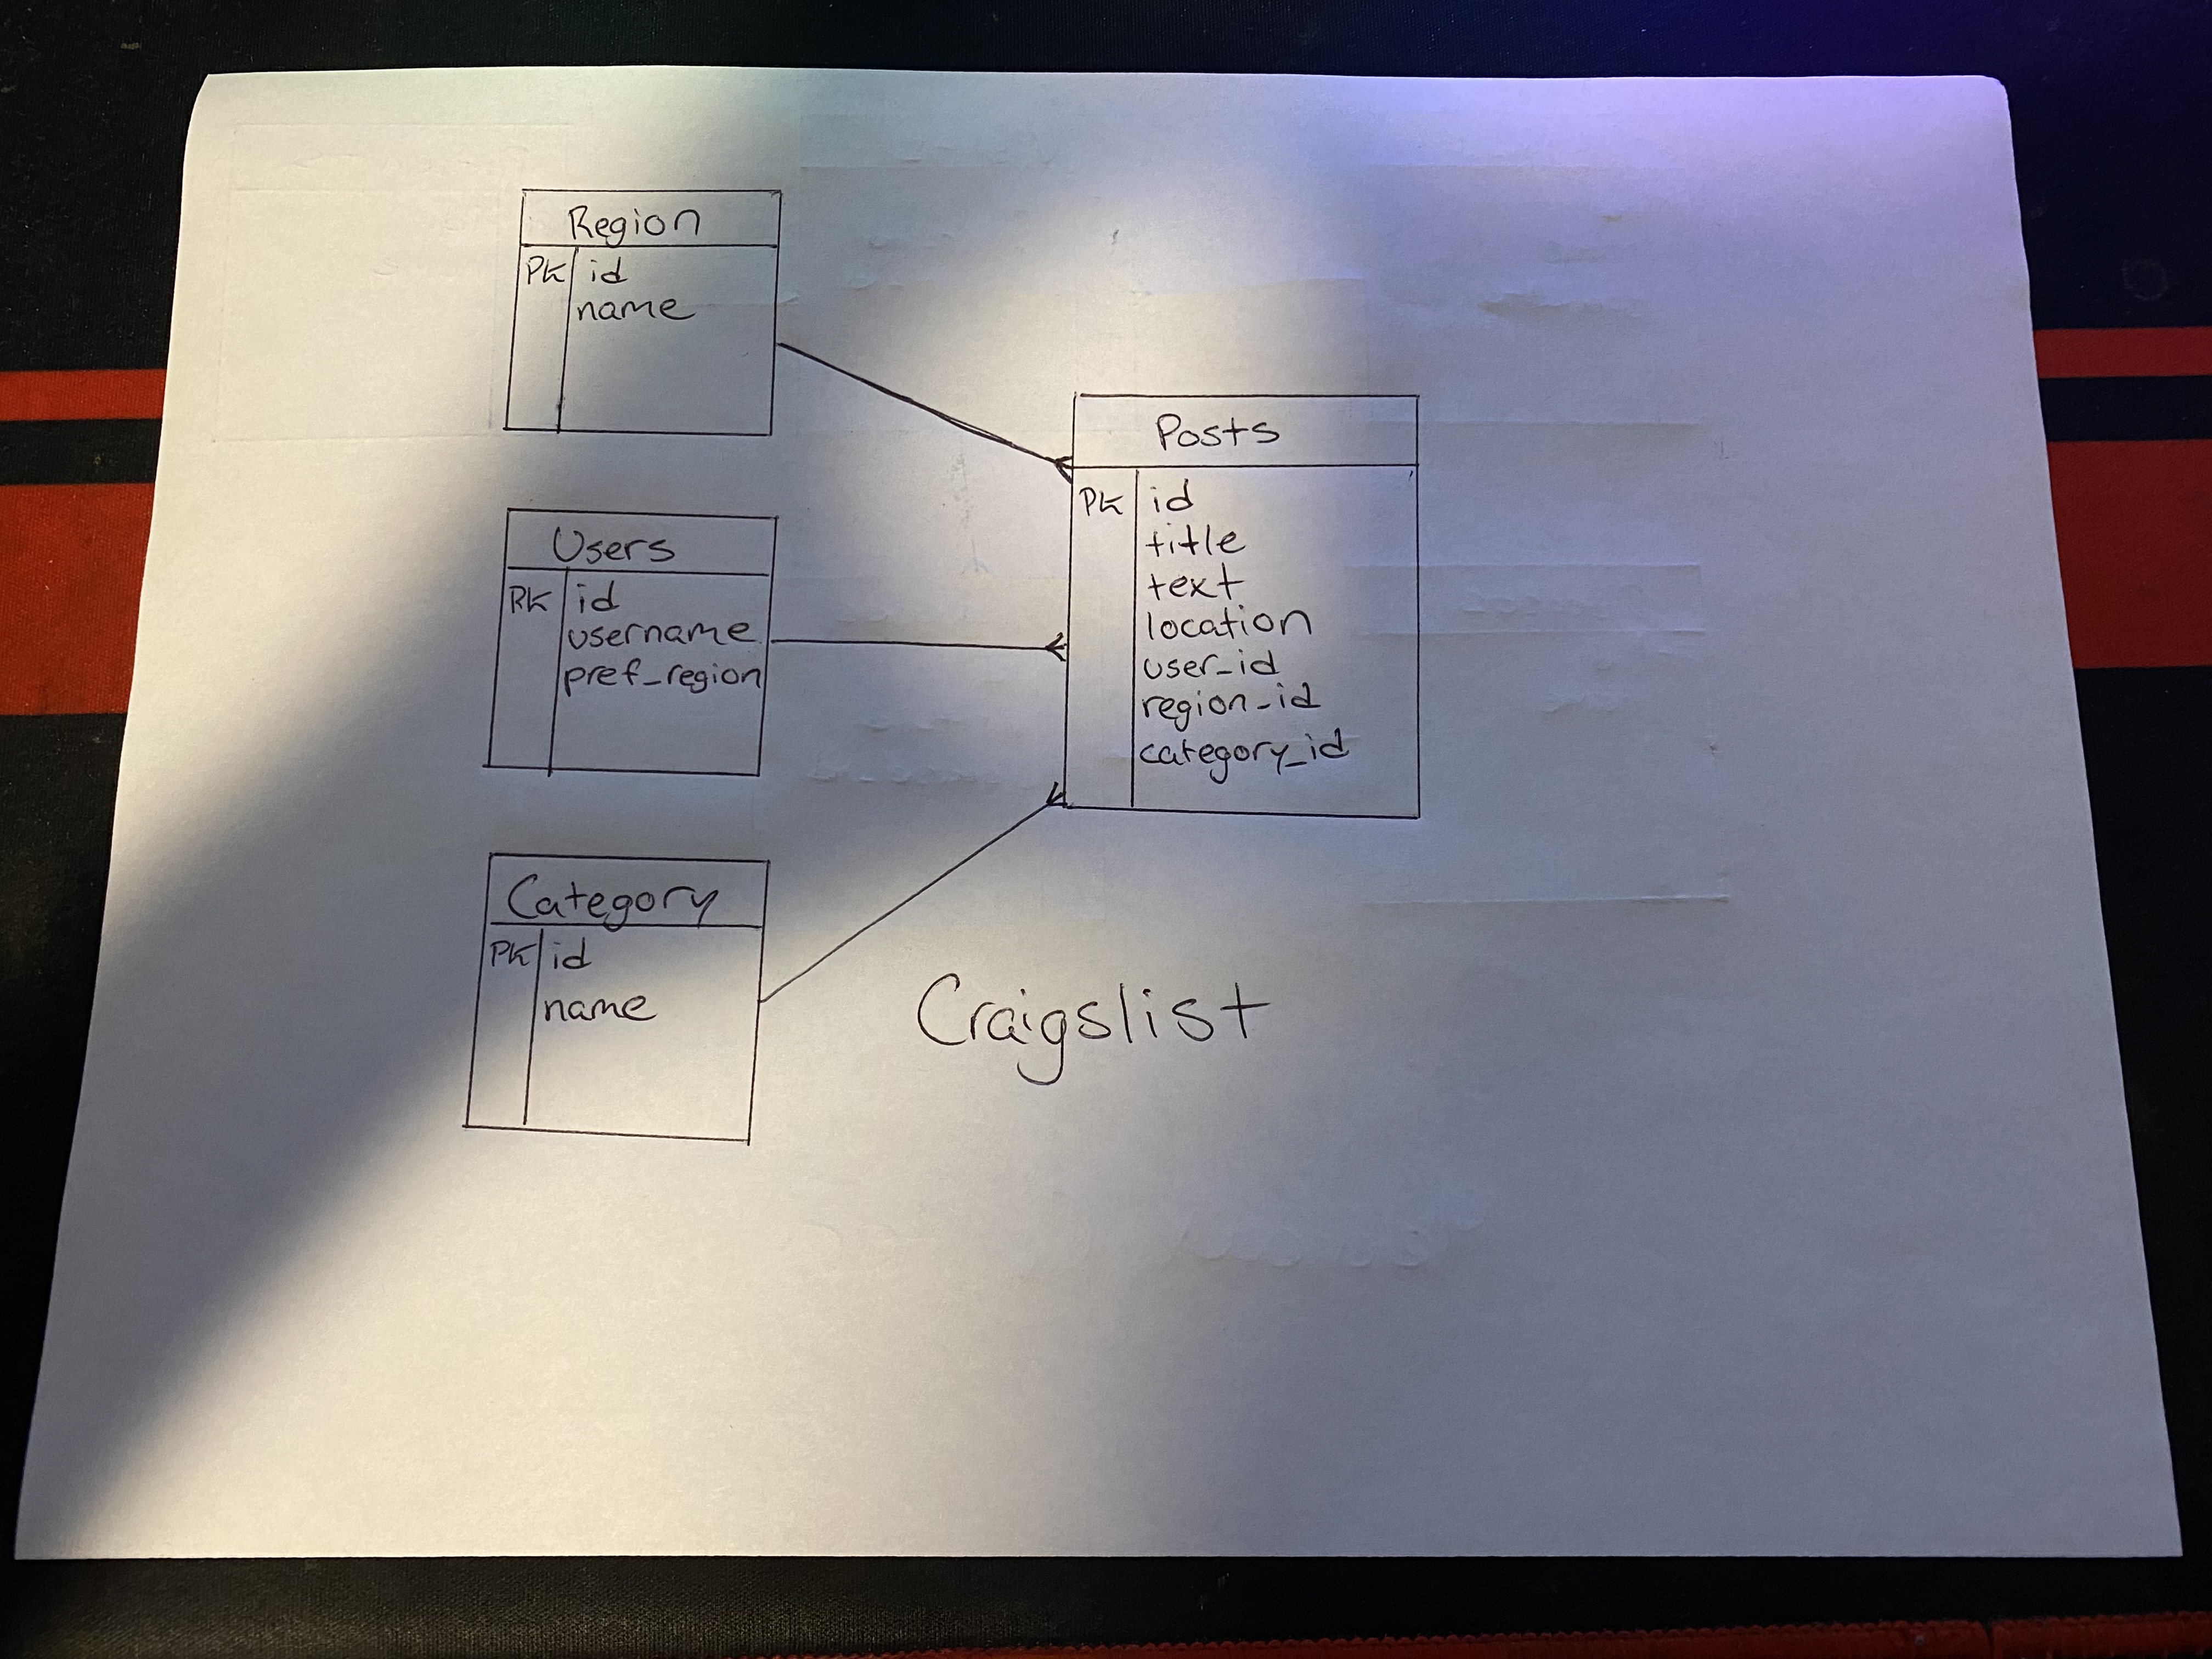 Region
PK id
name
Users
PK id
username
pref_region
Category
PK id
name
Posts
PK id
title
text
location
user_id
region_id
category_id
Craigslist